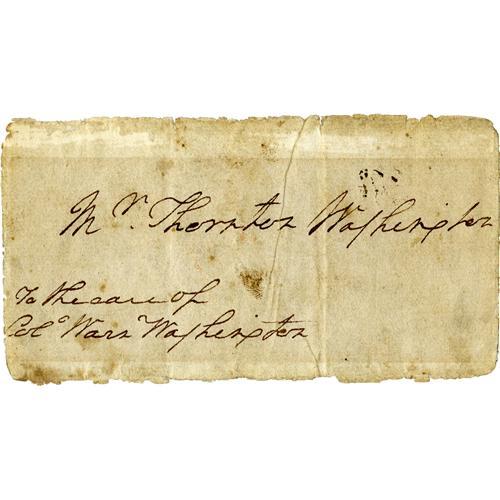 Mr. Thornton Washington
To the care of
Colo Warn Washington